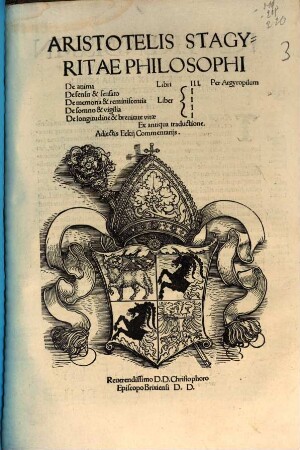 ARISTOTELIS STAGY-
RITAE PHILOSOPHI
De anima Libri III. Per Argyropilum
De sensu & sensato I
De memoria & reminiscentia Liber I
De somno & vigilia I
De longitudine & breuitate vitæ I
Ex antiqua traductione.
Adiectis Eckij Commentarijs.
Reuerendissimo D.D. Christophoro
Episcopo Brixiensi D. D.
3